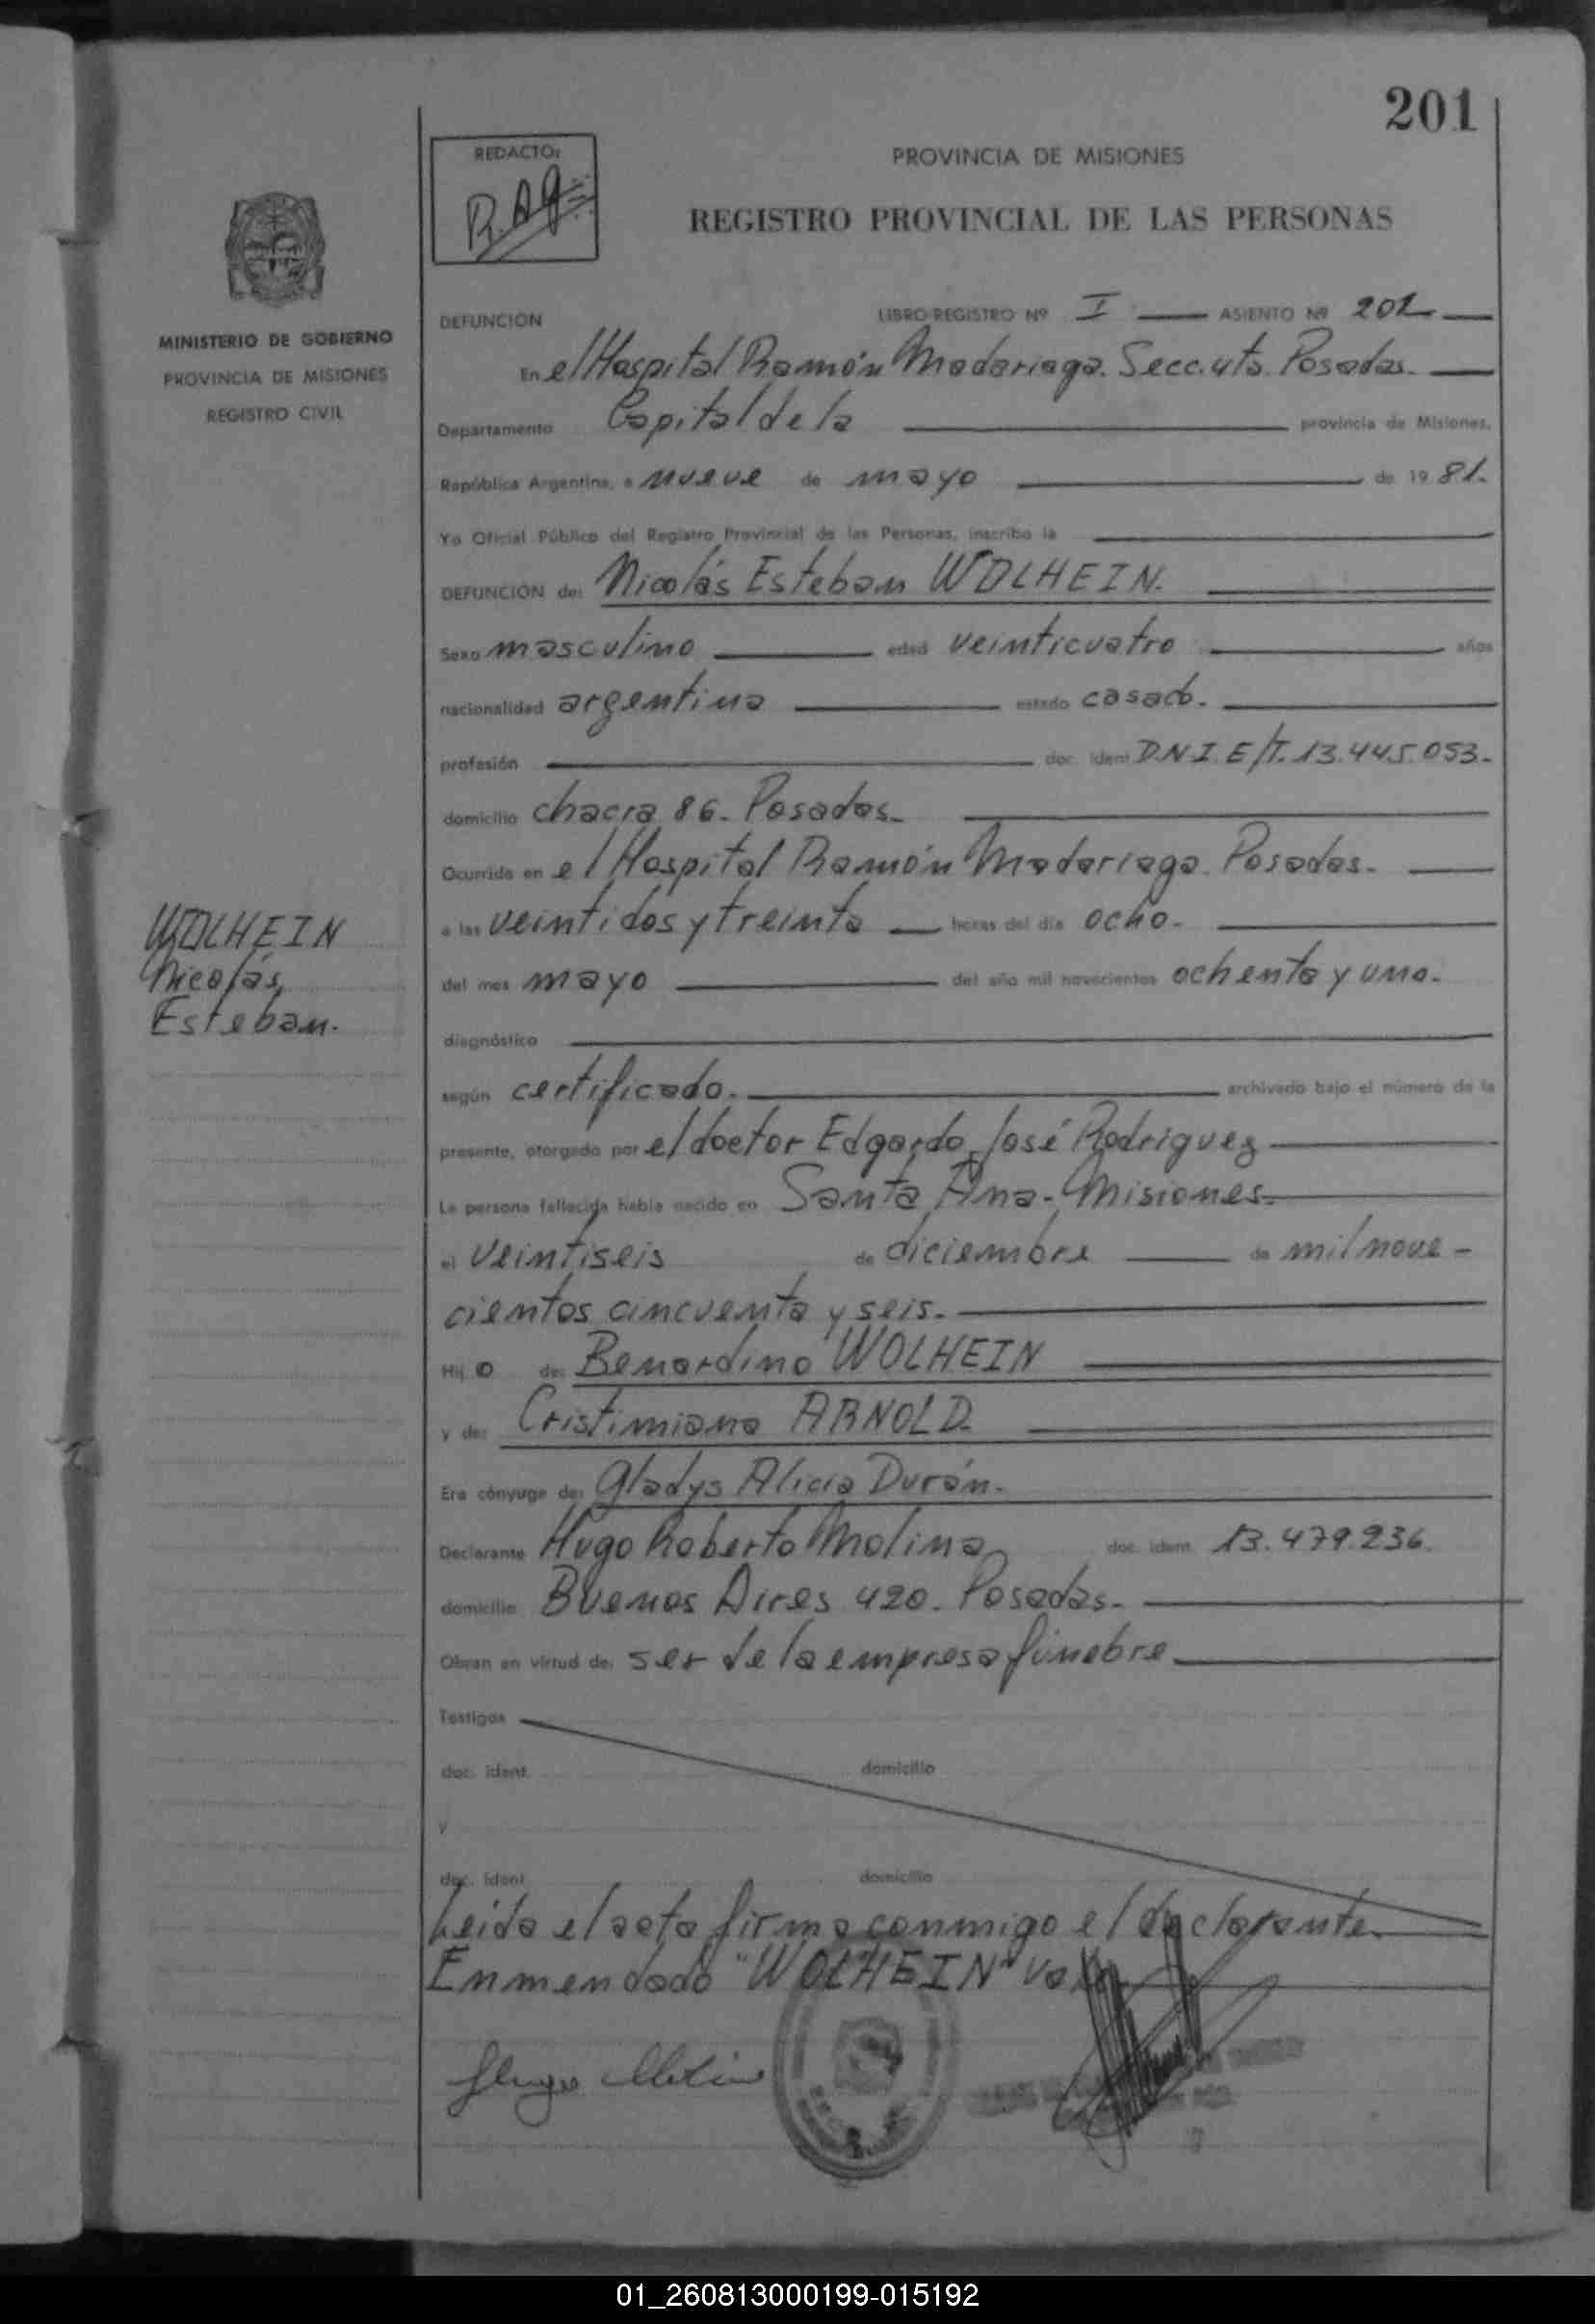 201
REDACTO:
R.Ag
PROVINCIA DE MISIONES
REGISTRO PROVINCIAL DE LAS PERSONAS
MINISTERIO DE GOBIERNO
PROVINCIA DE MISIONES
REGISTRO CIVIL
DEFUNCION LIBRO-REGISTRO Nº I ASIENTO Nº 201
En el Hospital Ramón Madariaga. Secc. 4ta. Posadas.
Departamento Capital de la provincia de Misiones,
República Argentina, a nueve de mayo de 19 81.
Yo Oficial Público del Registro Provincial de las Personas, inscribo la
DEFUNCION de: Nicolás Esteban WOLHEIN.
Sexo masculino edad veinticuatro años
nacionalidad argentina estado casado.
profesión doc. ident D.N.I. E/T. 13.445.053.
domicilio chacra 86. Posadas.
Ocurrida en el Hospital Ramón Madariaga. Posadas.
a las veintidos y treinta horas del día ocho.
del mes mayo del año mil novecientos ochenta y uno.
WOLHEIN
Nicolás
Esteban.
diagnóstico
según certificado. archivado bajo el número de la
presente, otorgado por el doctor Edgardo José Rodriguez
La persona fallecida había nacido en Santa Ana - Misiones.
el veintiseis de diciembre de mil nove-
cientos cincuenta y seis.
Hij o de: Benardino WOLHEIN
y de: Cristimiana ARNOLD.
Era cónyuge de: Gladys Alicia Durán.
Declarante Hugo Roberto Molina doc. ident. 13.479.236.
domicilio Buenos Aires 420. Posadas.
Obran en virtud de: ser de la empresa fúnebre
Testigos
doc. ident. domicilio
y
doc. ident domicilio
Leida el acta firma conmigo el declarante.
Enmendado "WOLHEIN" vale
Hugo Molina
01_260813000199-015192